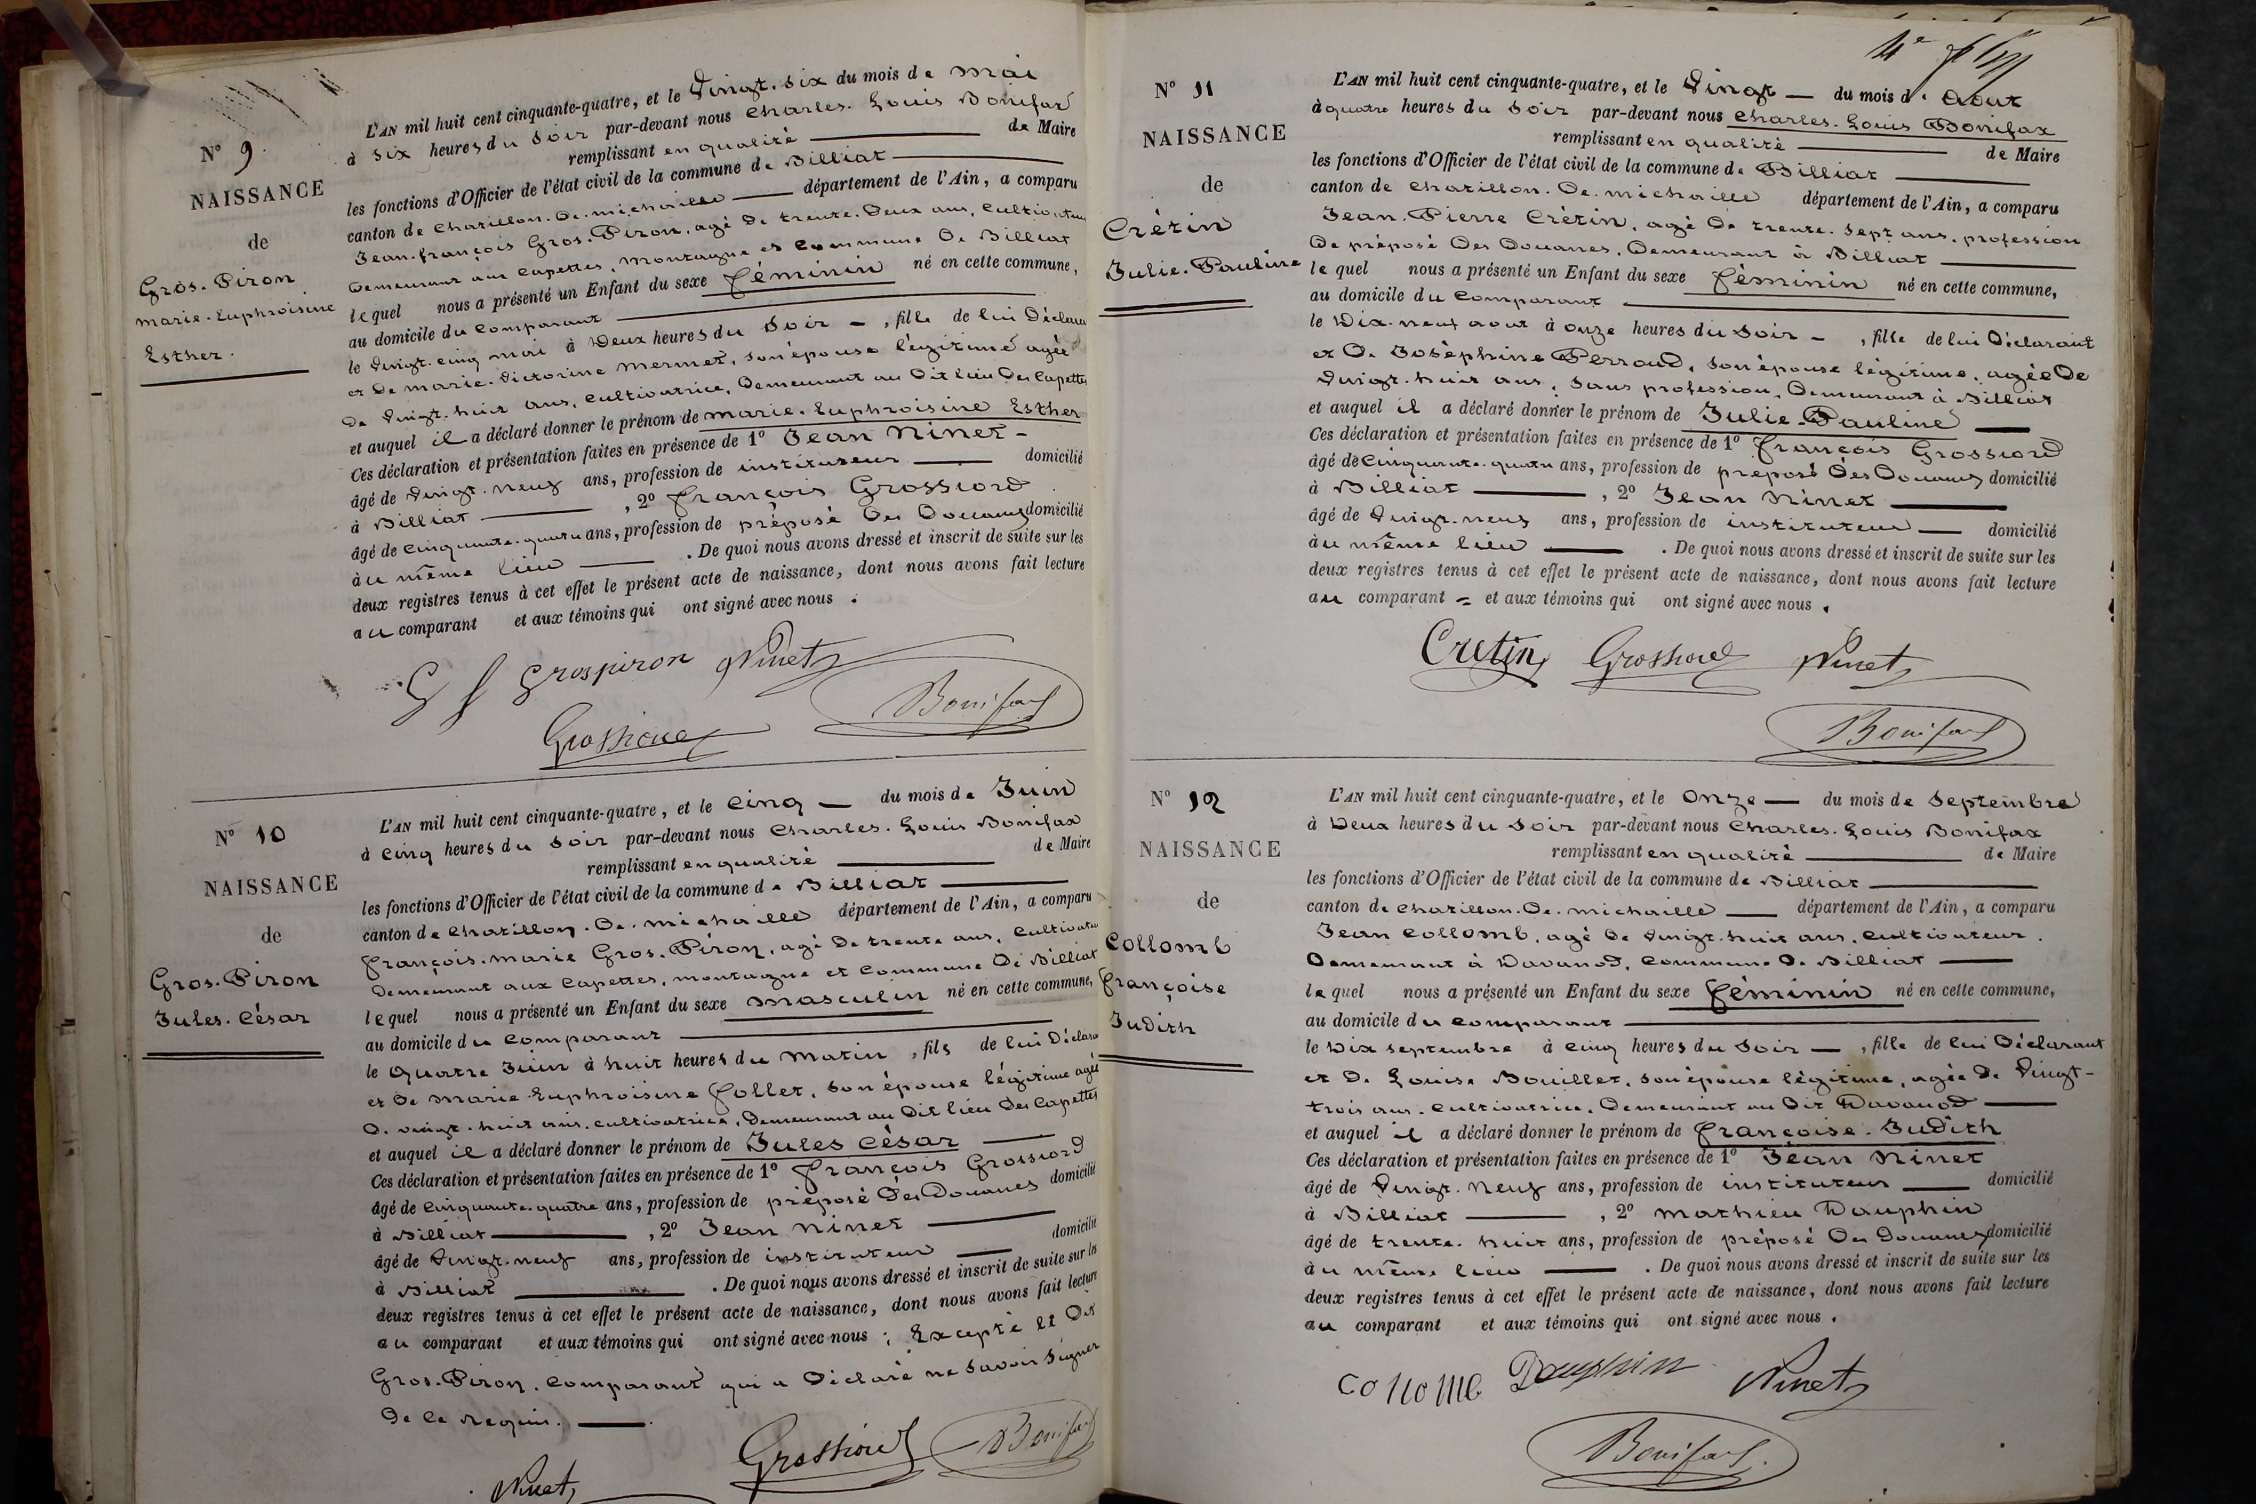 N° 9
NAISSANCE
de
Gros-Piron
Marie-Euphroisine
Esther.
L'AN mil huit cent cinquante-quatre, et le Vingt-six du mois de Mai
à six heures du soir par-devant nous Charles-Louis Bonifax
remplissant en qualité de Maire
les fonctions d'Officier de l'état civil de la commune de Billiat
canton de Chatillon-de-Michaille département de l'Ain, a comparu
Jean-François Gros-Piron, agé de trente-deux ans, cultivateur
demeurant aux Capettes, montagne et commune de Billiat
lequel nous a présenté un Enfant du sexe féminin né en cette commune,
au domicile du comparant
le vingt-cinq mai à Deux heures du soir, fille de lui Déclarant
et de Marie-Victorine Mermet, son épouse légitime agée
de vingt-huit ans, cultivatrice, demeurant au dit lieu des Capettes
et auquel il a déclaré donner le prénom de Marie-Euphroisine Esther
Ces déclaration et présentation faites en présence de 1° Jean Ninet
âgé de vingt-neuf ans, profession de instituteur domicilié
à Billiat, 2° François Grossiord
âgé de cinquante-quatre ans, profession de préposé des Douanes domicilié
au même lieu. De quoi nous avons dressé et inscrit de suite sur les
deux registres tenus à cet effet le présent acte de naissance, dont nous avons fait lecture
au comparant et aux témoins qui ont signé avec nous.
G f grospiron Ninet
Grossiord Bonifax
N° 10
NAISSANCE
de
Gros-Piron
Jules-César
L'AN mil huit cent cinquante-quatre, et le cinq du mois de Juin
à cinq heures du soir par-devant nous Charles-Louis Bonifax
remplissant en qualité de Maire
les fonctions d'Officier de l'état civil de la commune de Billiat
canton de Chatillon-de-Michaille département de l'Ain, a comparu
François-Marie Gros-Piron, agé de trente ans, cultivateur
demeurant aux Capettes, montagne et commune de Billiat
lequel nous a présenté un Enfant du sexe masculin né en cette commune,
au domicile du comparant
le quatre Juin à huit heures du matin, fils de lui Déclarant
et de Marie-Euphroisine Follet, son épouse légitime agée
de vingt-huit ans, cultivatrice, demeurant au dit lieu des Capettes
et auquel il a déclaré donner le prénom de Jules César
Ces déclaration et présentation faites en présence de 1° François Grossiord
âgé de cinquante-quatre ans, profession de préposé des Douanes domicilié
à Billiat, 2° Jean Ninet
âgé de vingt-neuf ans, profession de instituteur domicilié
à Billiat. De quoi nous avons dressé et inscrit de suite sur les
deux registres tenus à cet effet le présent acte de naissance, dont nous avons fait lecture
au comparant et aux témoins qui ont signé avec nous; Excepté le dit
Gros-Piron, comparant qui a déclaré ne savoir signer
de ce requis.
Ninet Grossiord Bonifax
N° 11
NAISSANCE
de
Crétin
Julie-Pauline
L'AN mil huit cent cinquante-quatre, et le Vingt du mois d'Aout
à quatre heures du soir par-devant nous Charles-Louis Bonifax
remplissant en qualité de Maire
les fonctions d'Officier de l'état civil de la commune de Billiat
canton de Chatillon-de-Michaille département de l'Ain, a comparu
Jean-Pierre Crétin, agé de trente-sept ans, profession
de préposé des Douanes, demeurant à Billiat
lequel nous a présenté un Enfant du sexe féminin né en cette commune,
au domicile du comparant
le Dix-neuf aout à onze heures du soir, fille de lui Déclarant
et de Joséphine Perraud, son épouse légitime, agée de
vingt-huit ans, sans profession, demeurant à Billiat
et auquel il a déclaré donner le prénom de Julie-Pauline
Ces déclaration et présentation faites en présence de 1° François Grossiord
âgé de cinquante-quatre ans, profession de préposé des Douanes domicilié
à Billiat, 2° Jean Ninet
âgé de vingt-neuf ans, profession de instituteur domicilié
au même lieu. De quoi nous avons dressé et inscrit de suite sur les
deux registres tenus à cet effet le présent acte de naissance, dont nous avons fait lecture
au comparant et aux témoins qui ont signé avec nous.
Cretin Grossiord Ninet
Bonifax
N° 12
NAISSANCE
de
Collomb
Françoise
Judith
L'AN mil huit cent cinquante-quatre, et le onze du mois de Septembre
à Deux heures du soir par-devant nous Charles-Louis Bonifax
remplissant en qualité de Maire
les fonctions d'Officier de l'état civil de la commune de Billiat
canton de Chatillon-de-Michaille département de l'Ain, a comparu
Jean Collomb, agé de vingt-huit ans, cultivateur,
demeurant à Davanod, commune de Billiat
lequel nous a présenté un Enfant du sexe féminin né en cette commune,
au domicile du comparant
le Dix septembre à cinq heures du soir, fille de lui Déclarant
et de Louise Bouillet, son épouse légitime, agée de vingt-
trois ans, cultivatrice, demeurant au dit Davanod
et auquel il a déclaré donner le prénom de Françoise-Judith
Ces déclaration et présentation faites en présence de 1° Jean Ninet
âgé de vingt-neuf ans, profession de instituteur domicilié
à Billiat, 2° Mathieu Dauphin
âgé de trente-huit ans, profession de préposé des Douanes domicilié
au même lieu. De quoi nous avons dressé et inscrit de suite sur les
deux registres tenus à cet effet le présent acte de naissance, dont nous avons fait lecture
au comparant et aux témoins qui ont signé avec nous.
Collomb Dauphin Ninet
Bonifax